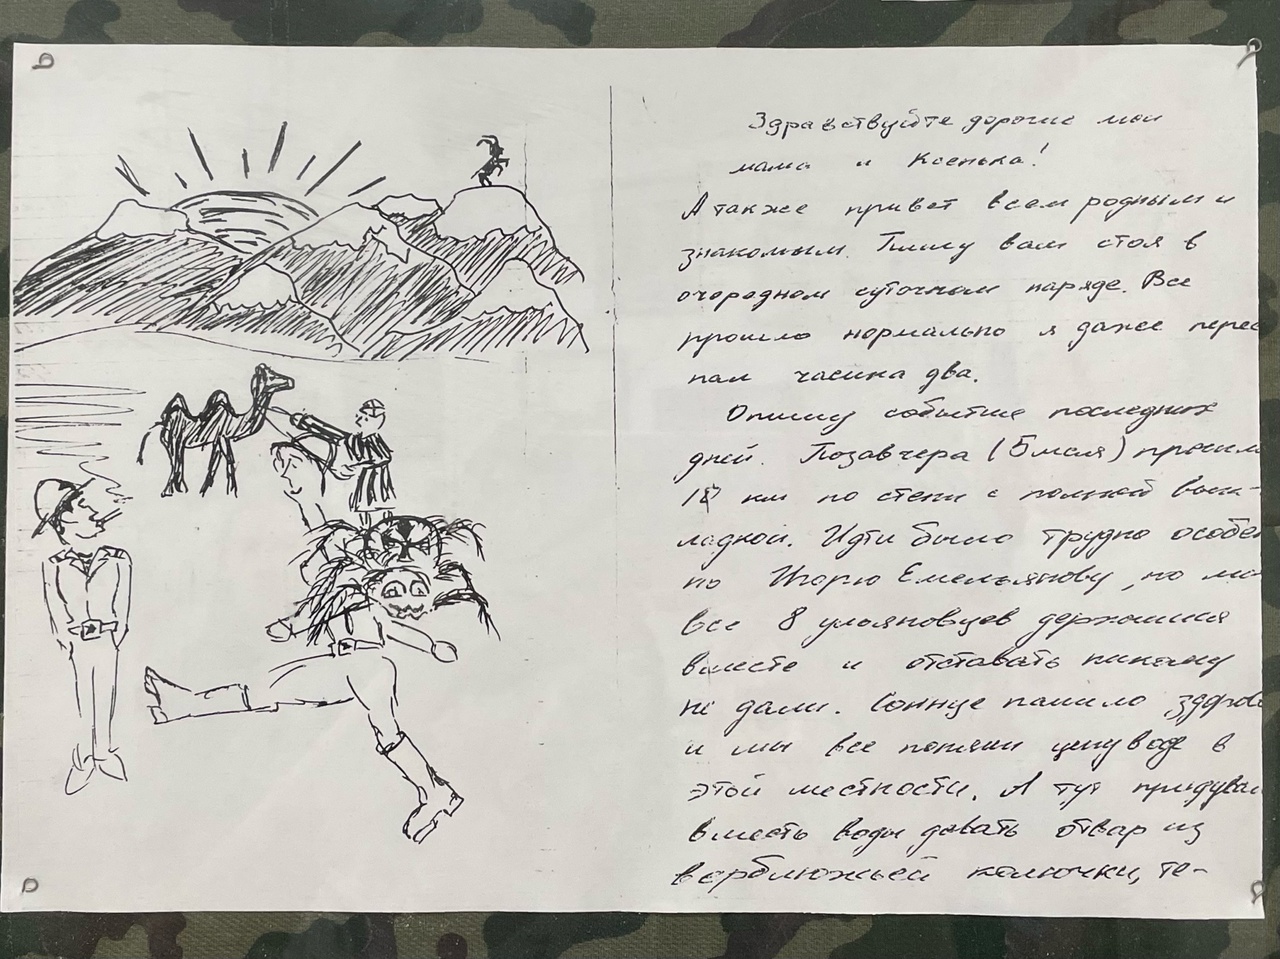 Здравствуйте дорогие мои
мама и Ксенька!
А также привет всем родным и
знакомым. Пишу вам стоя в
очередном суточном наряде. Все
прошло нормально я даже перес
пал часика два.
Опишу событие последних
дней. Позавчера (5 мая) прошли
км по степи с полной вык-
ладкой. Идти было трудно особен
но Игорю Емельянову, но мы
все 8 ульяновцев держашися
вместе и отставать никому
не дали. Солнце палило здорово
и мы все поняли цену воде в
этой местности. А тут придумал
вместо воды давать отвар из
верблюжьей колючки, те-